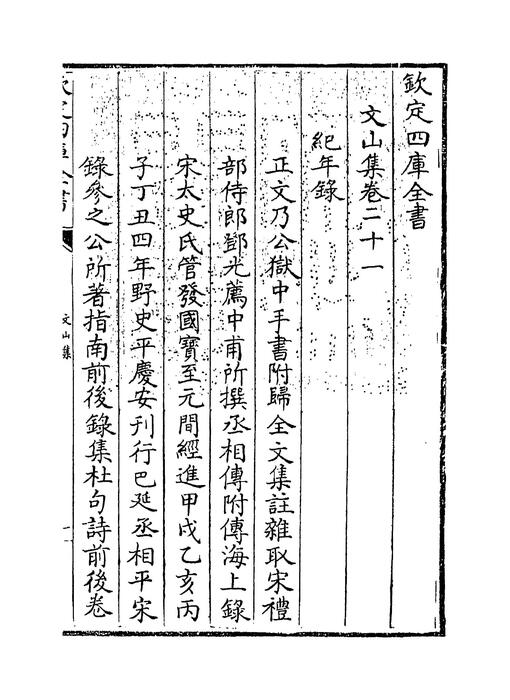 欽定四庫全書
文山集卷二十一
紀年錄
正文乃公獄中手書附歸全文集註雜取宋禮
部侍郎鄧光薦中甫所撰丞相傳附傳海上錄
宋太史氏管發國寶至元間經進甲戌乙亥丙
子丁丑四年野史平慶安刊行巴延丞相平宋
錄參之公所著指南前後錄集杜句詩前後卷
欽定四庫全書
文山集